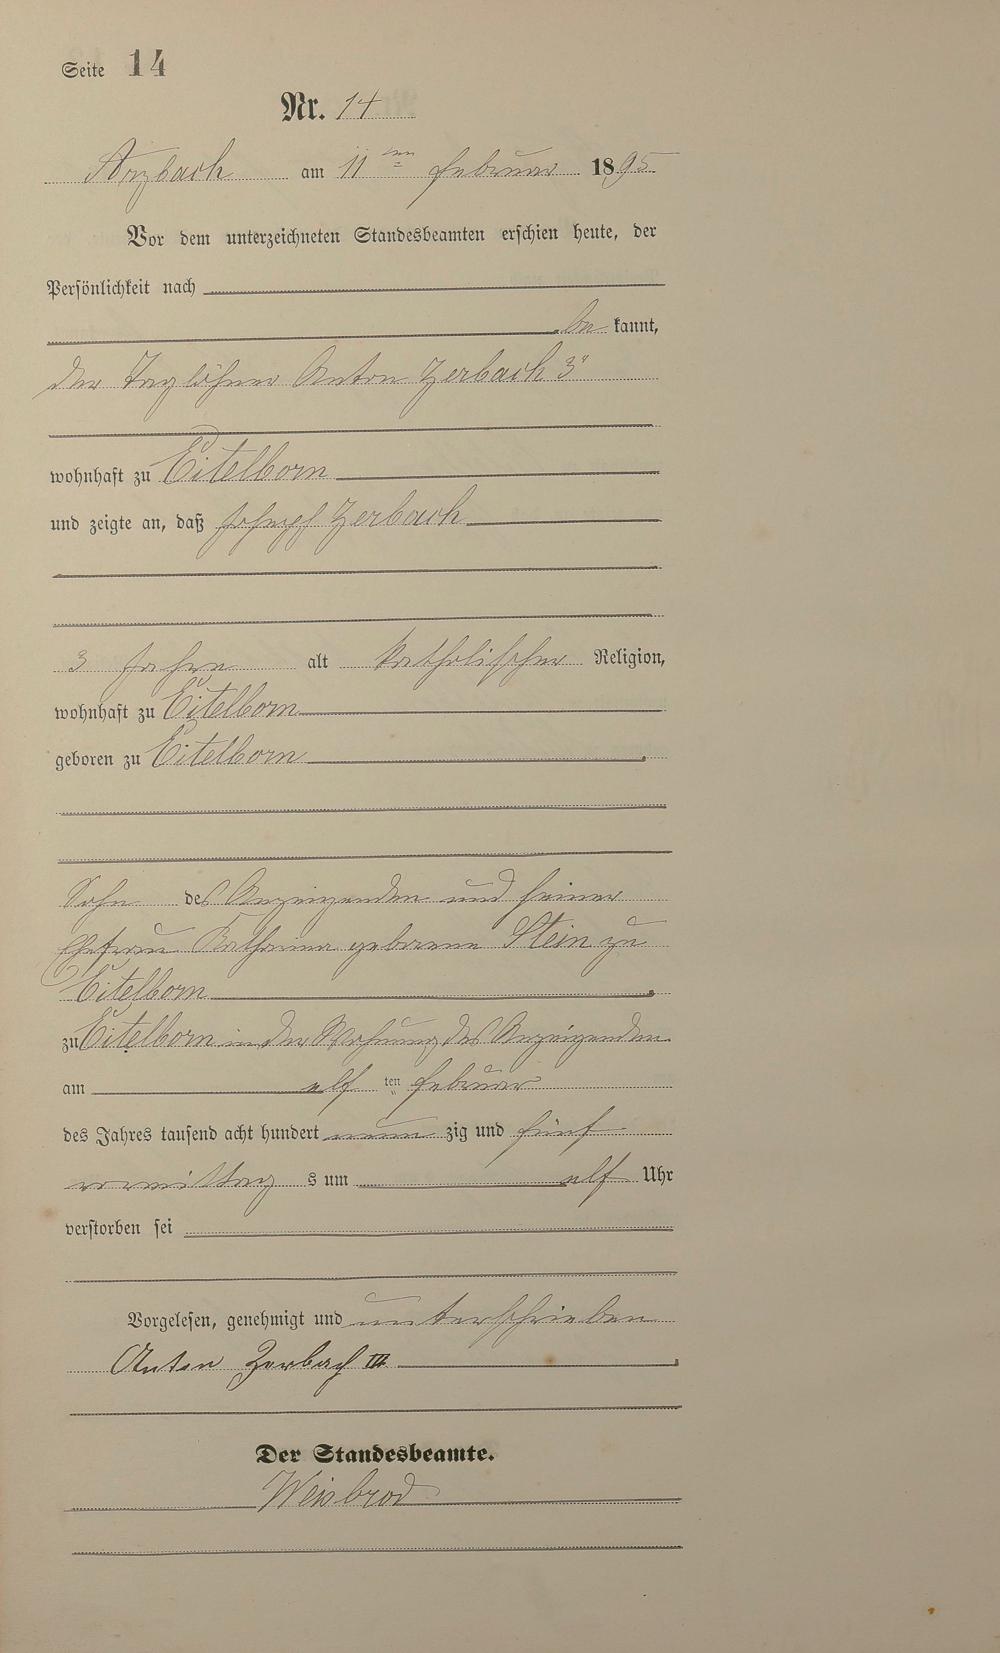 Seite 14
Nr. 14
Arzbach am 11ten Februar 1895
Vor dem unterzeichneten Standesbeamten erschien heute, der
Persönlichkeit nach
be kannt,
der Taglöhner Anton Zerbach 3r
wohnhaft zu Eitelborn
und zeigte an, daß Joseph Zerbach
3 Jahre alt katholischer Religion,
wohnhaft zu Eitelborn
geboren zu Eitelborn
Sohn des Anzeigenden und seiner
Ehefrau Katharina geborene Stein zu
Eitelborn
zu Eitelborn in der Wohnung des Anzeigenden
am elf ten Februar
des Jahres tausend acht hundert neun zig und fünf
vormittag s um elf Uhr
verstorben sei
Vorgelesen, genehmigt und unterschrieben
Anton Zerbach III
Der Standesbeamte.
Weisbrod